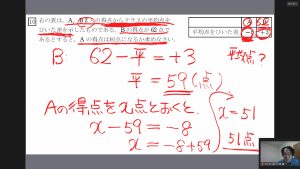 10 右の表は、A、Bの2人の得点からクラスの平均点を
ひいた差を示したものである。Bの得点が62点で
あるとすると、Aの得点は何点になるか求めなさい。
A B
平均点をひいた差 -8 +3
平均点?
B: 62-平=+3
平=59(点)
Aの得点をx点とおくと、
x-59=-8
x=-8+59
x=51
51点